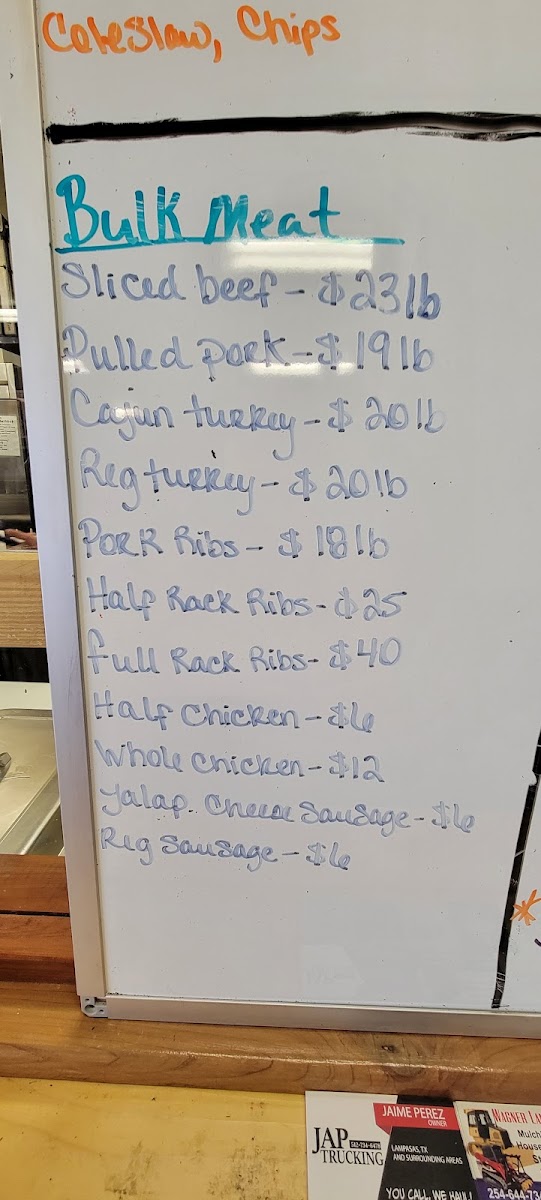 Coleslaw, Chips
Bulk Meat
Sliced beef - $23lb
Pulled pork - $19lb
Cajun turkey - $20lb
Reg turkey - $20lb
Pork Ribs - $18lb
Half Rack Ribs - $25
full Rack Ribs - $40
Half Chicken - $6
Whole chicken - $12
Jalap. Cheese Sausage - $6
Reg Sausage - $6
JAIME PEREZ
OWNER
JAP
TRUCKING
LAMPASAS, TX
AND SURROUNDING AREAS
YOU CALL, WE HAUL
WARNER LA
Mulch
House
254-644-7